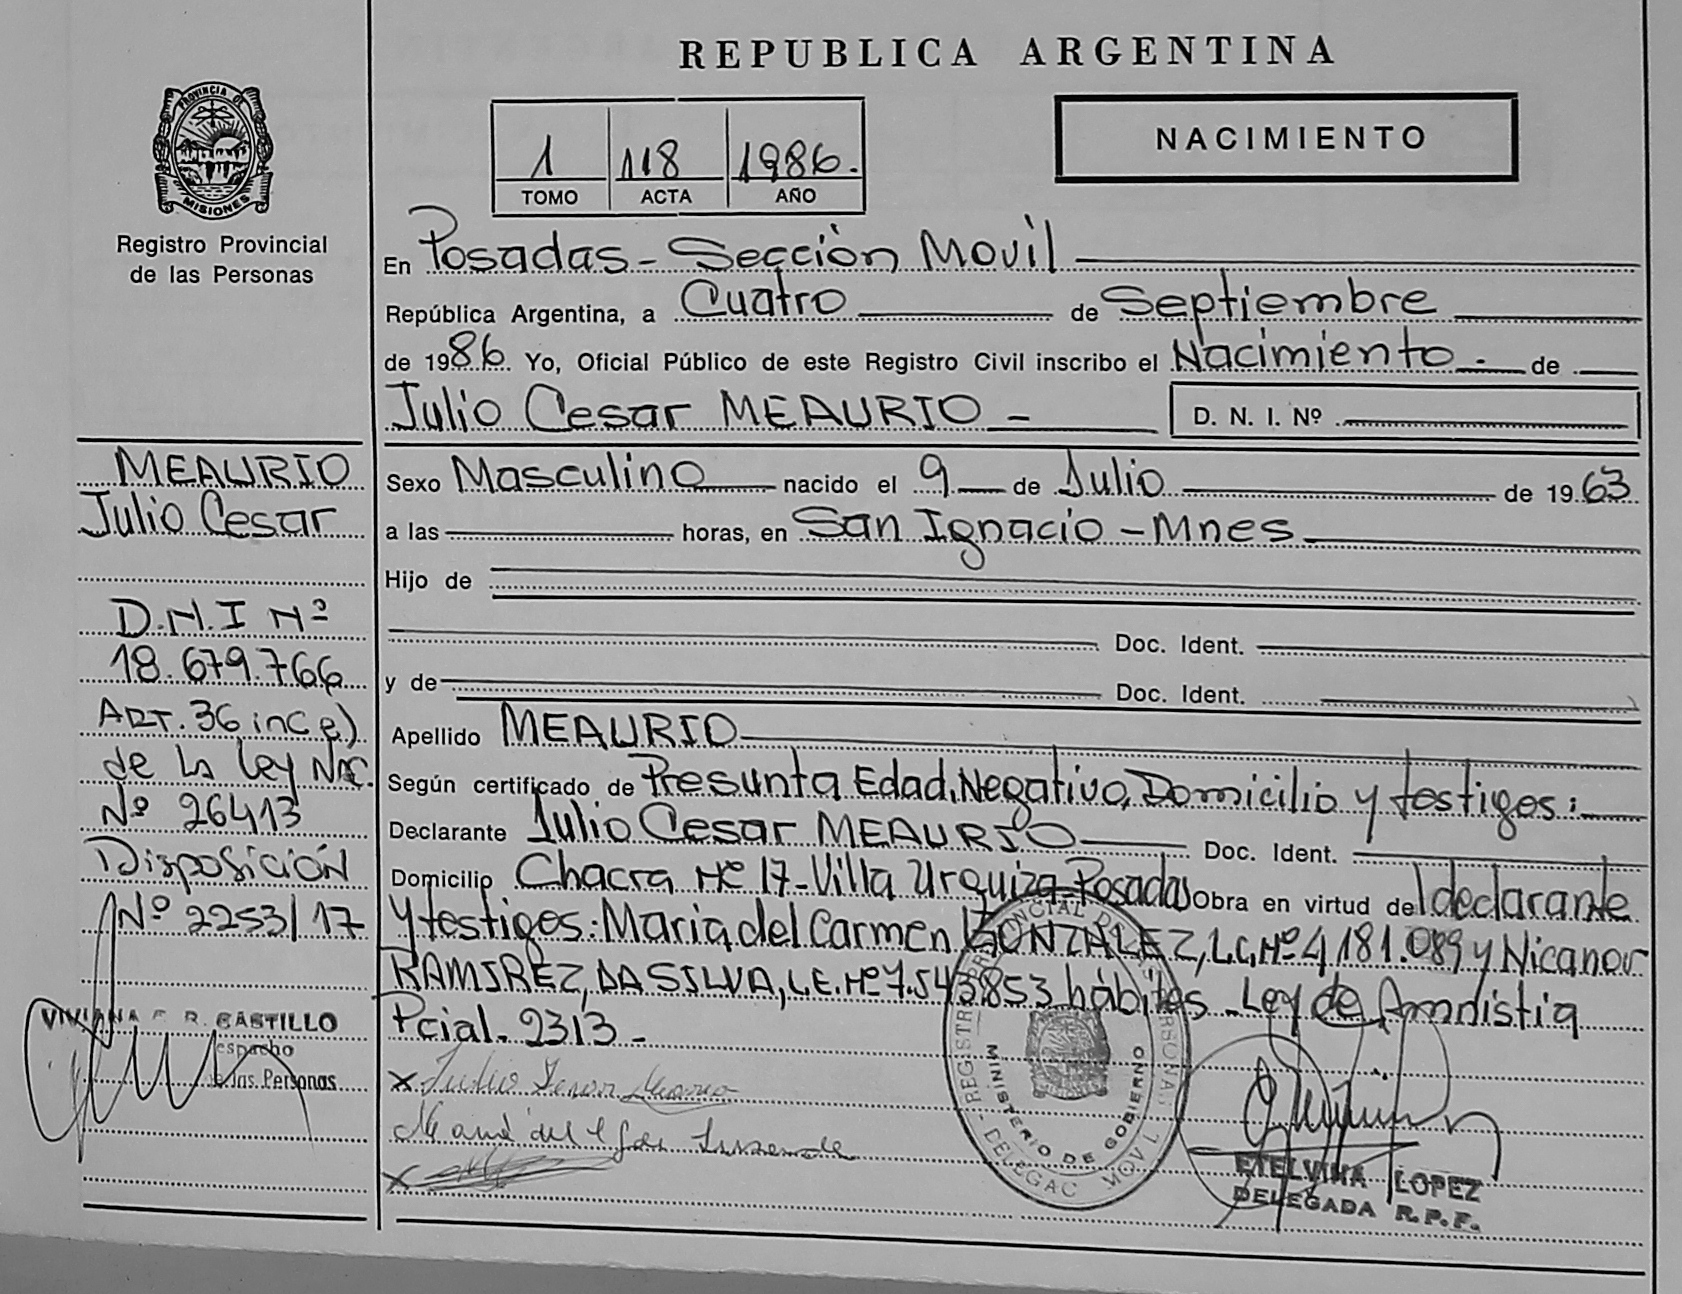 REPUBLICA ARGENTINA
PROVINCIA DE
MISIONES
Registro Provincial
de las Personas
1 118 1986.
TOMO ACTA AÑO
NACIMIENTO
En Posadas - Sección Movil
República Argentina, a Cuatro de Septiembre
de 1986. Yo, Oficial Público de este Registro Civil inscribo el Nacimiento - de
Julio Cesar MEAURIO - D. N. I. Nº
Sexo Masculino nacido el 9 de Julio de 1963
a las horas, en San Ignacio - Mnes
Hijo de
Doc. Ident.
y de Doc. Ident.
Apellido MEAURIO
Según certificado de Presunta Edad, Negativo, Domicilio y testigos:
Declarante Julio Cesar MEAURIO Doc. Ident.
Domicilio Chacra Nº 17 - Villa Urquiza - Posadas Obra en virtud del declarante
y testigos: Maria del Carmen GONZALEZ, L.C. Nº 4.181.089 y Nicanor
RAMIREZ, DA SILVA, L.E. Nº 7.543.853 hábiles - Ley de Amnistia
Pcial. 2313 -
MEAURIO
Julio Cesar
D.N.I Nº
18.679.766
ART. 36 inc e)
de la Ley Nac.
Nº 26413
Disposición
Nº 2253/17
VIVIANA R. CASTILLO
espacho
de las Personas
MINISTERIO DE GOBIERNO
ETELVINA LOPEZ
DELEGADA R.P.P.